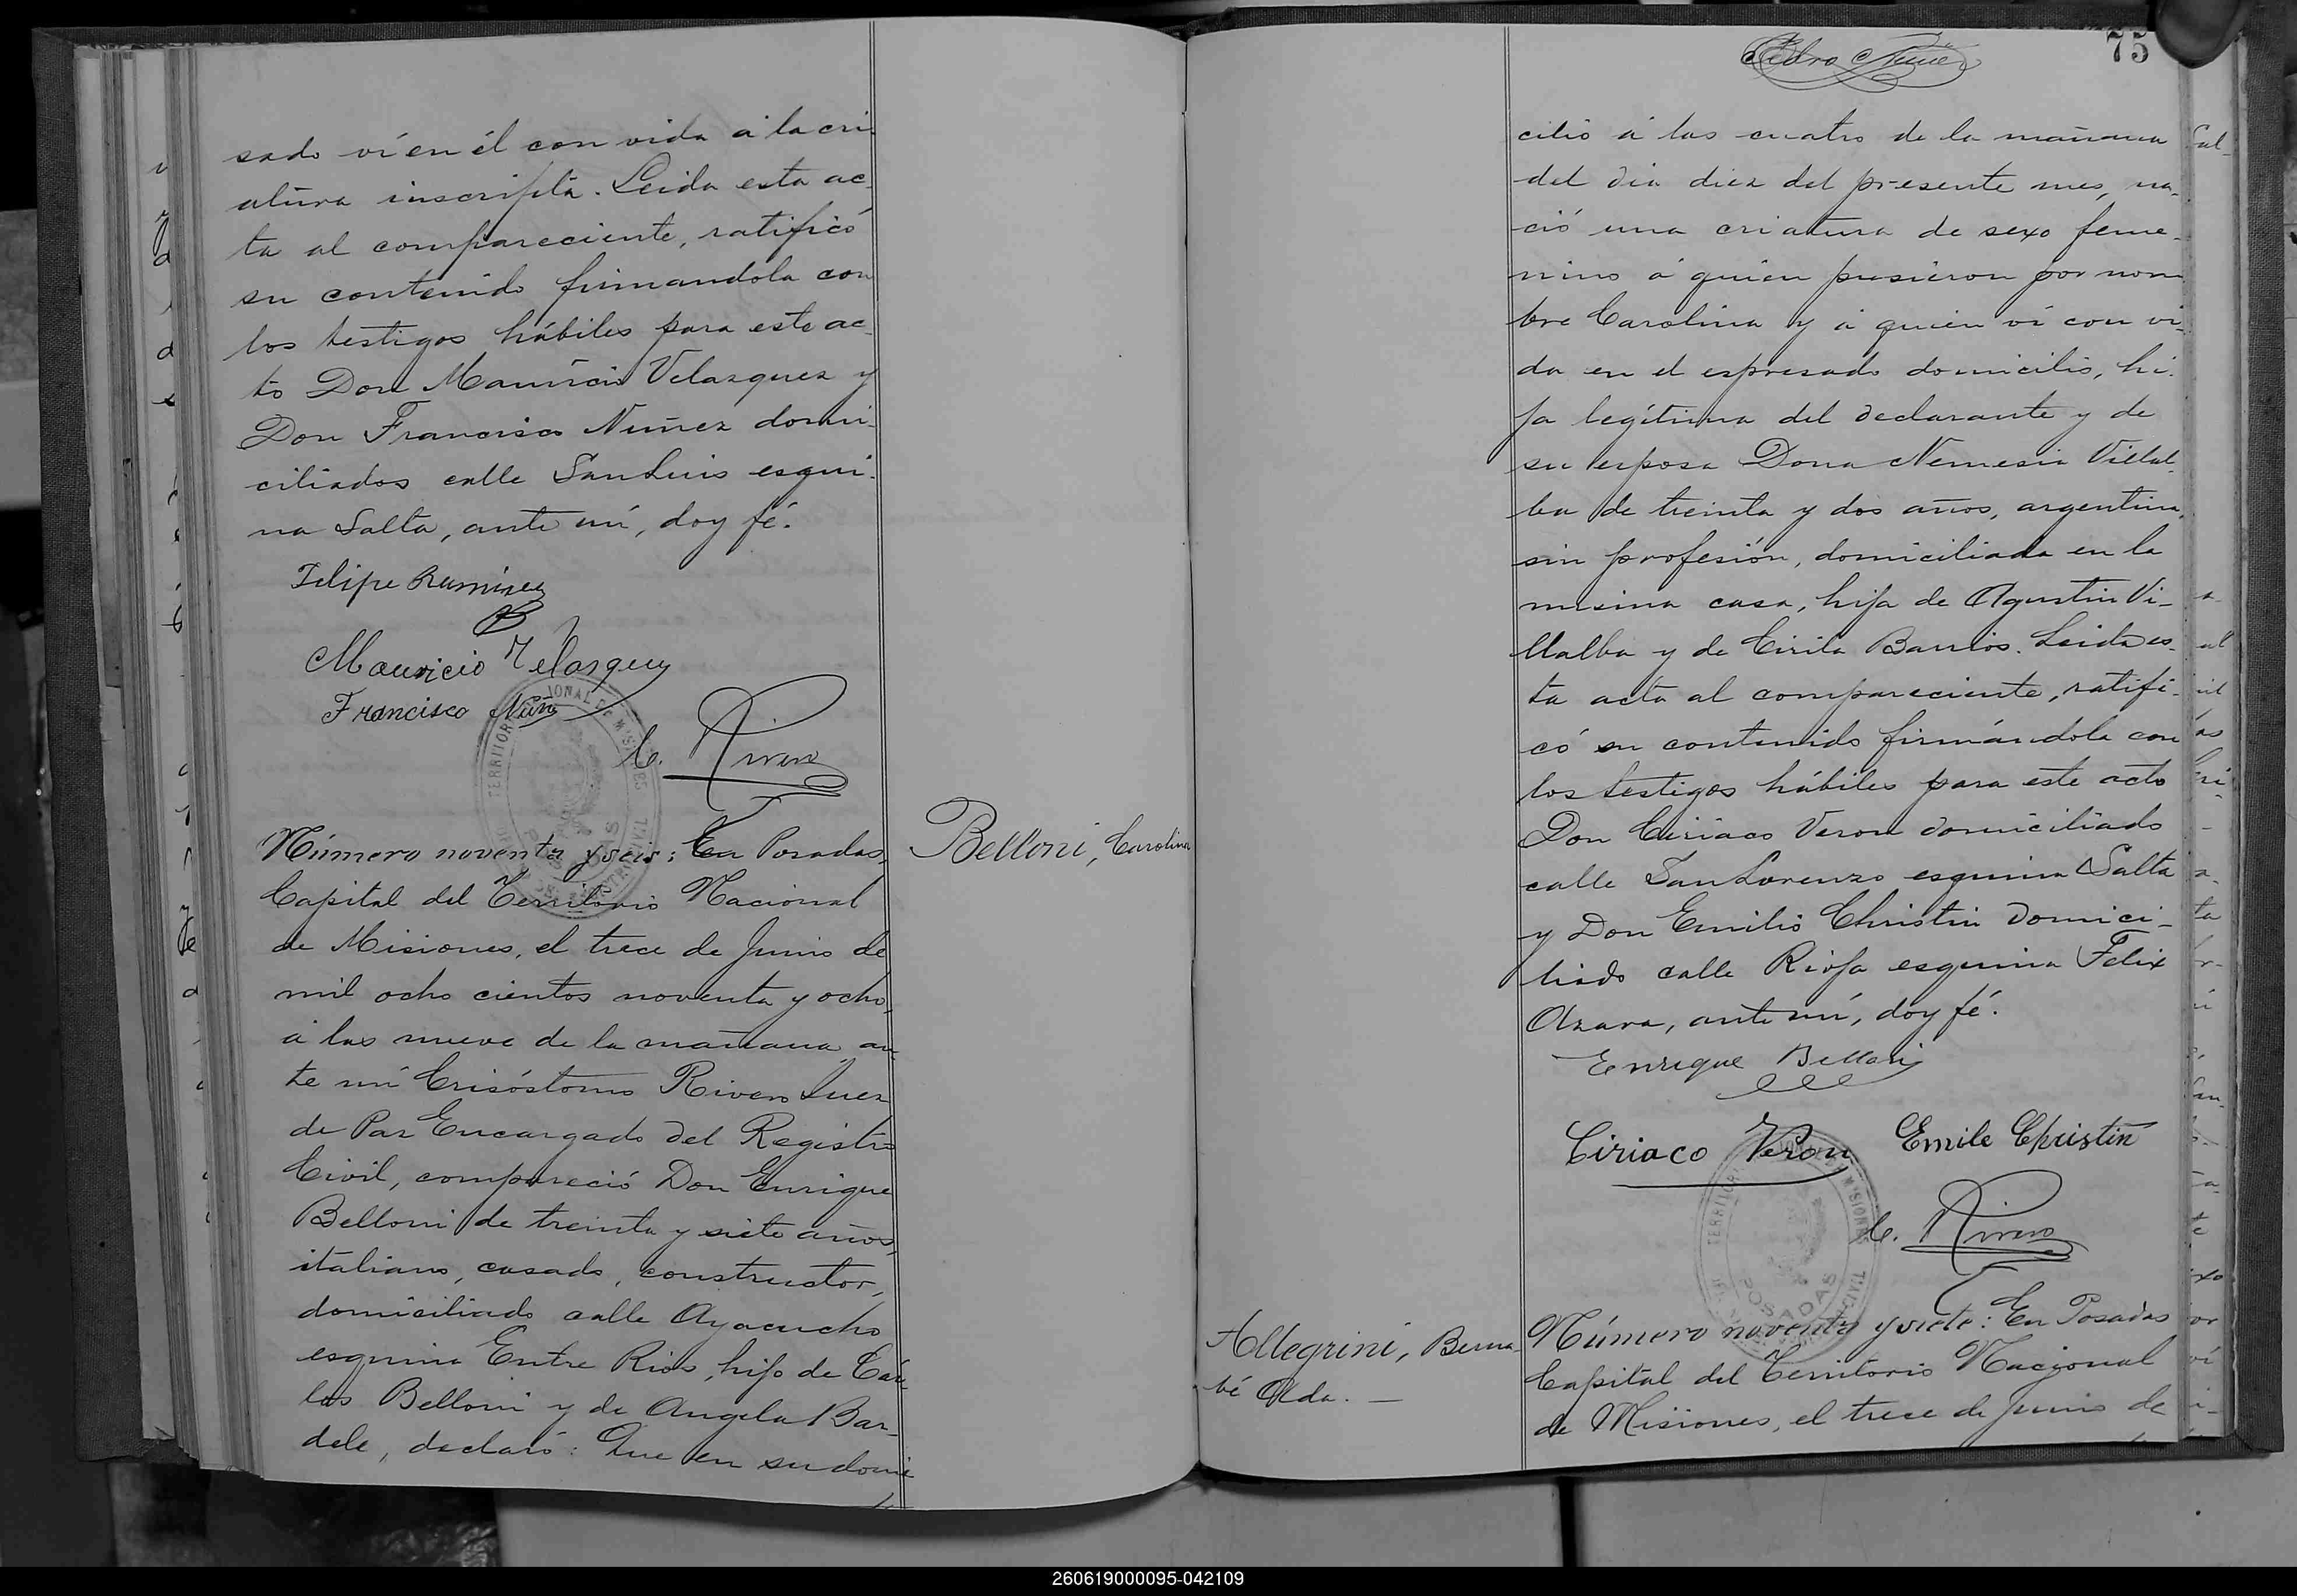 sado ví en él con vida á la cri-
atura inscripta. Leida esta ac-
ta al compareciente, ratificó
su contenido firmandola con
los testigos hábiles para este ac-
to Don Mauricio Velazquez y
Don Francisco Nuñez domi-
ciliados calle San Luis esqui-
na Salta, ante mí, doy fé.
Felipe Ramirez
Mauricio Velasquez
Francisco Nuñez
C. Rivero
TERRITORIO NACIONAL DE MISIONES
Belloni, Carolina
Número noventa y seis: En Posadas,
Capital del Territorio Nacional
de Misiones, el trece de Junio de
mil ocho cientos noventa y ocho,
á las nueve de la mañana, an-
te mí Crisóstomo Rivero Juez
de Paz Encargado del Registro
Civil, compareció Don Enrique
Belloni de treinta y siete años,
italiano, casado, constructor,
domiciliado calle Ayacucho
esquina Entre Rios, hijo de Car-
los Belloni y de Angela Bar-
dele, declaró: Que en su domi-
75
Pedro Nuñez
cilio á las cuatro de la mañana
del dia diez del presente mes, na-
ció una criatura de sexo feme-
nino á quien pusieron por nom-
bre Carolina y á quien ví con vi-
da en el espresado domicilio, hi-
ja legítima del declarante y de
su esposa Dona Nemesia Villal-
ba de treinta y dos años, argentina,
sin profesión, domiciliada en la
misma casa, hija de Agustin Vi-
llalba y de Cirila Barrios. Leida es-
ta acta al compareciente, ratifi-
có su contenido firmándola con
los testigos hábiles para este acto
Don Ciriaco Veron domiciliado
calle San Lorenzo esquina Salta
y Don Emilio Christin domici-
liado calle Rioja esquina Felix
Azara, ante mí, doy fé.
Enrique Belloni
Ciriaco Veron
Emile Christin
C. Rivero
POSADAS
Allegrini, Berna-
bé Alda. —
Número noventa y siete: En Posadas
Capital del Territorio Nacional
de Misiones, el trece de Junio de
260619000095-042109